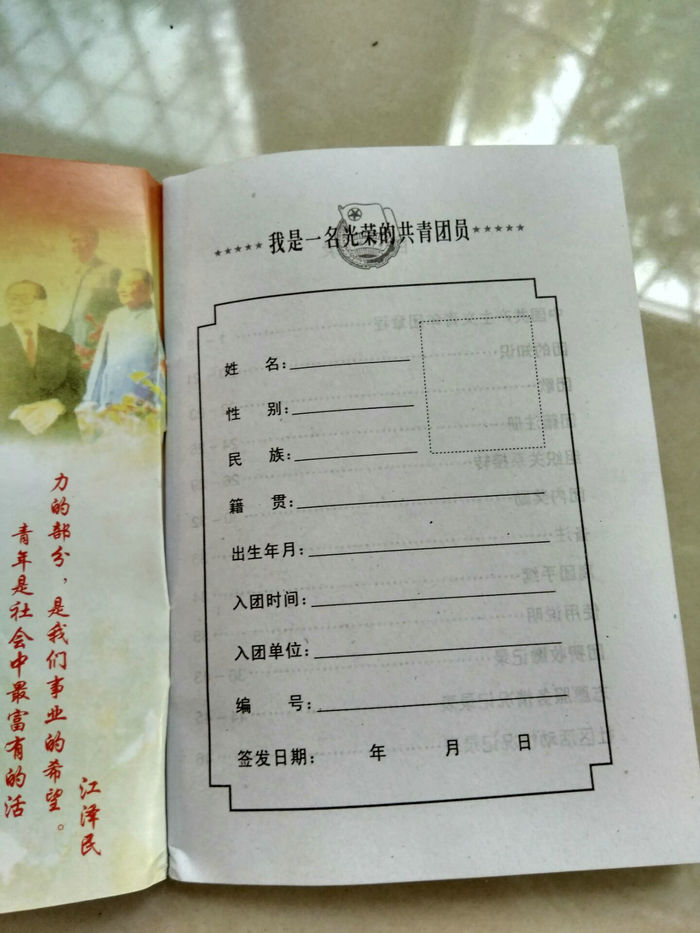 青年是社会中最富有的活
力的部分，是我们事业的希望。
江泽民
★★★★★ 我是一名光荣的共青团员 ★★★★★
姓 名：
性 别：
民 族：
籍 贯：
出生年月：
入团时间：
入团单位：
编 号：
签发日期： 年 月 日